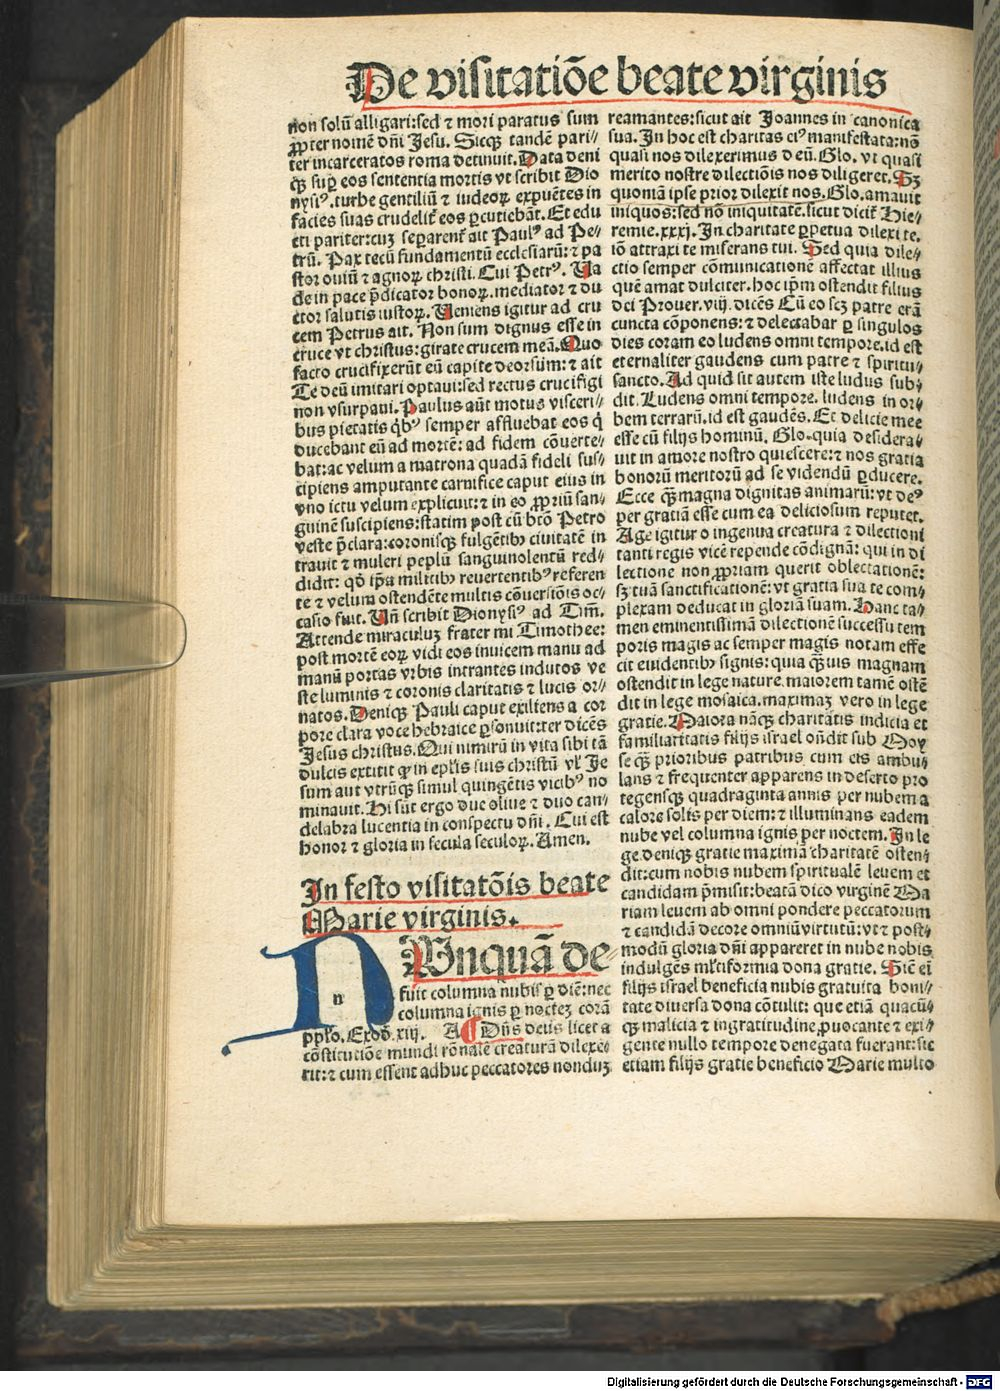 De visitatiōe beate virginis
non solū alligari:sed ⁊ mori paratus sum
ꝓpter nomē dn̄i Jesu. Sicqꝫ tandē pari⸗
ter incarceratos roma detinuit. Data deni
qꝫ suꝑ eos sententia mortis vt scribit Dio
nysiꝰ. turbe gentiliū ⁊ iudeoꝝ expuētes in
facies suas crudelit̄ eos ꝑcutiebāt. Et edu
cti pariter:cuꝫ seꝑarent̄ ait Paulꝰ ad Pe⸗
trū. Pax tecū fundamentū ecclesiarū: ⁊ pa
stor ouiū ⁊ agnoꝝ christi. Cui Petrꝰ. Va
de in pace p̄dicator bonoꝝ. mediator ⁊ du
ctor salutis iustoꝝ. Veniens igitur ad cru
cem Petrus ait. Non sum dignus esse in
cruce vt christus: girate crucem meā. Quo
facto crucifixerūt eū capite deorsum: ⁊ ait
Te deū imitari optaui:sed rectus crucifigi
non vsurpaui. Paulus aūt motus visceri⸗
bus pietatis q̄bꝰ semper affluebat eos q̄
ducebant eū ad mortē: ad fidem cōuerte⸗
bat:ac velum a matrona quadā fideli sus⸗
cipiens amputante carnifice caput eius in
vno ictu velum explicuit: ⁊ in eo ꝓpriū san⸗
guinē suscipiens: statim post cū btō Petro
veste p̄clara: coronisqꝫ fulgētibꝰ ciuitatē in
trauit ⁊ muleri peplū sanguinolentū red⸗
didit: qd̄ ip̄a militibꝰ reuertentibꝰ referen
te ⁊ velum ostendēte multis cōuersiōis oc⸗
casio fuit. Vn̄ scribit Dionysiꝰ ad Tim̄.
Attende miraculuꝫ frater mi Timothee:
post mortē eoꝝ vidi eos inuicem manu ad
manū portas vrbis intrantes indutos ve
ste luminis ⁊ coronis claritatis ⁊ lucis or⸗
natos. Deniqꝫ Pauli caput exiliens a cor
pore clara voce hebraice ꝑsonuit:ter dicēs
Jesus christus. Qui nimirū in vita sibi tā
dulcis extitit ꝙ in ep̄lis suis christū vl̄ Je
sum aut vtrūqꝫ simul quingētis vicibꝰ no
minauit. Hi sūt ergo due oliue ⁊ duo can⸗
delabra lucentia in conspectu dn̄i. Cui est
honor ⁊ gloria in secula seculoꝝ. Amen.
In festo visitatōis beate
Marie virginis.
n
NUnquā de⸗
fuit columna nubis ꝑ diē:nec
columna ignis ꝑ nocteꝫ corā
pp̄lo. Exod̄. xiij. A Dn̄s deus licet a
cōstitutiōe mundi rōnalē creaturā dilexe⸗
rit: ⁊ cum essent adhuc peccatores nonduꝫ
reamantes: sicut ait Joannes in canonica
sua. In hoc est charitas eiꝰ manifestata: nō
quasi nos dilexerimus deū. Glo. vt quasi
merito nostre dilectiōis nos diligeret. Sꝫ
quoniā ipse prior dilexit nos. Glo. amauit
iniquos: sed nō iniquitatē. sicut dicit̄ Hie⸗
remie. xxxj. In charitate ꝑpetua dilexi te.
iō attraxi te miserans tui. Sed quia dile⸗
ctio semper cōmunicationē affectat illius
quē amat dulciter. hoc ip̄m ostendit filius
dei Prouer. viij. dicēs Cū eo scꝫ patre erā
cuncta cōponens: ⁊ delectabar ꝑ singulos
dies coram eo ludens omni tempore. id est
eternaliter gaudens cum patre ⁊ spiritu⸗
sancto. Ad quid sit autem iste ludus sub⸗
dit. Ludens omni tempore. ludens in or⸗
bem terrarū. id est gaudēs. Et delicie mee
esse cū filijs hominū. Glo. quia desidera⸗
uit in amore nostro quiescere: ⁊ nos gratia
bonorū meritorū ad se videndū ꝑducere.
Ecce qꝫ̄ magna dignitas animarū: vt deꝰ
per gratiā esse cum ea deliciosum reputet.
Age igitur o ingenua creatura ⁊ dilectioni
tanti regis vicē repende cōdignā: qui in di
lectione non ꝓpriam querit oblectationē:
sꝫ tuā sanctificationē: vt gratia sua te com⸗
plexam deducat in gloriā suam. Hanc ta⸗
men eminentissimā dilectionē successu tem
poris magis ac semper magis notam effe
cit euidentibꝰ signis: quia qꝫ̄uis magnam
ostendit in lege nature. maiorem tamē ostē
dit in lege mosaica. maximaꝫ vero in lege
gratie. Maiora nāqꝫ charitatis indicia et
familiaritatis filijs israel on̄dit sub Moy
se qꝫ prioribus patribus cum eis ambu⸗
lans ⁊ frequenter apparens in deserto pro
tegensqꝫ quadraginta annis per nubem a
calore solis per diem: ⁊ illuminans eadem
nube vel columna ignis per noctem. In le
ge deniqꝫ gratie maximā charitatē osten⸗
dit: cum nobis nubem spiritualē leuem et
candidam p̄misit: beatā dico virginē Ma
riam leuem ab omni pondere peccatorum
⁊ candidā decore omniū virtutū: vt ⁊ post⸗
modū gloria dn̄i appareret in nube nobis
indulgēs ml̄tiformia dona gratie. Sic eī
filijs israel beneficia nubis gratuita boni⸗
tate diuersa dona cōtulit: que etiā quacū⸗
qꝫ malicia ⁊ ingratitudine ꝓuocante ⁊ exi⸗
gente nullo tempore denegata fuerant: sic
etiam filijs gratie beneficio Marie multo
Digitalisierung gefördert durch die Deutsche Forschungsgemeinschaft - DFG